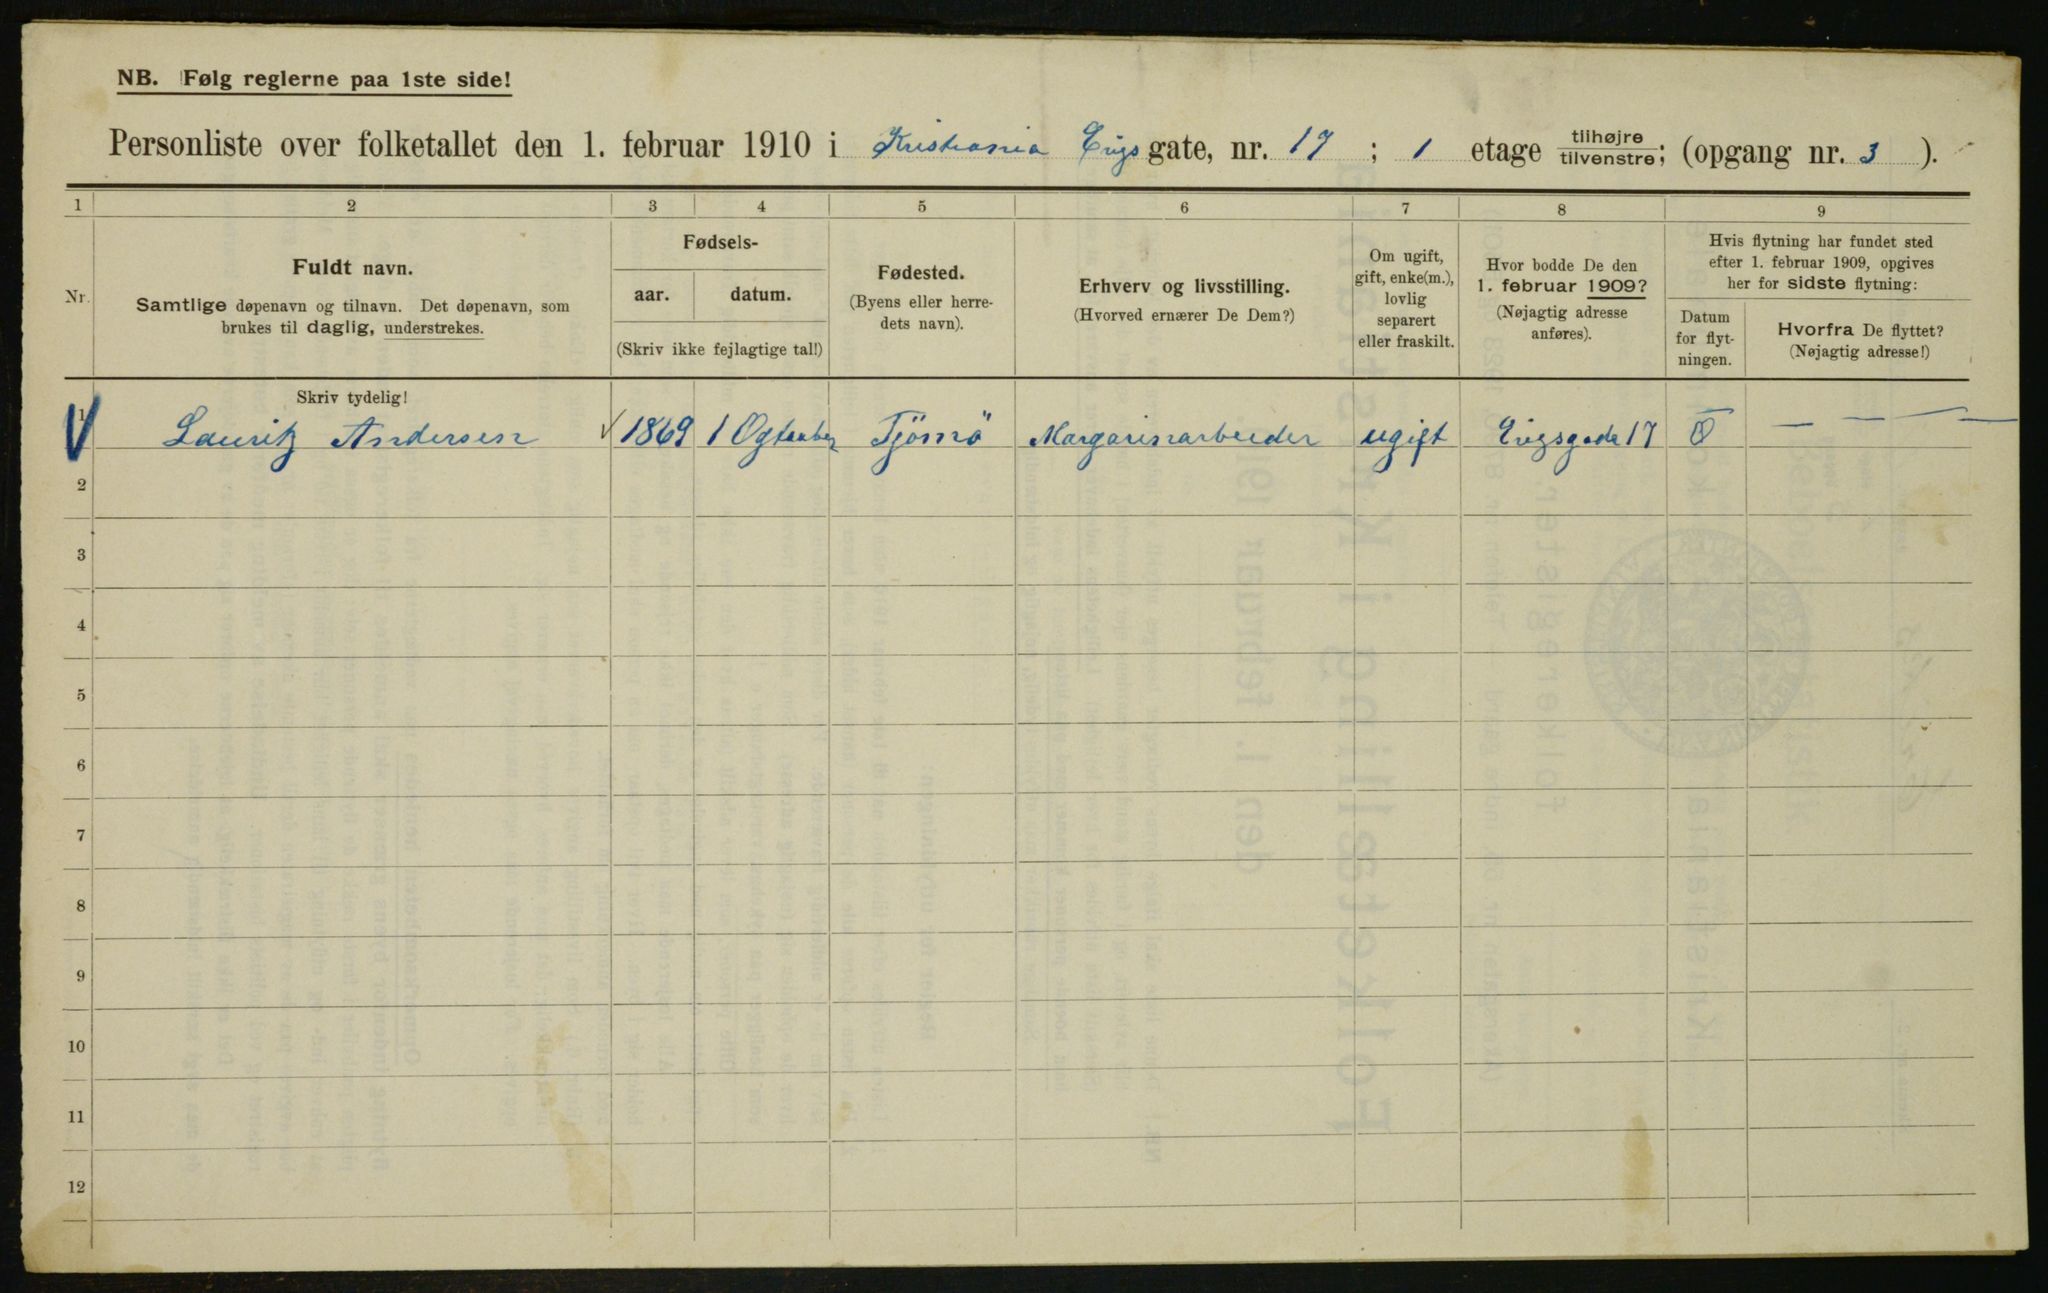 NB. Følg reglerne paa 1ste side!
Personliste over folketallet den 1. februar 1910 i Kristiania Erigs gate, nr. 17 ; 1 etage tilhøjre/tilvenstre; (opgang nr. 3 ).
1 2 3 4 5 6 7 8 9
Nr.
Fuldt navn.
Samtlige døpenavn og tilnavn. Det døpenavn, som
brukes til daglig, understrekes.
Fødsels-
aar. datum.
(Skriv ikke fejlagtige tal!)
Fødested.
(Byens eller herre-
dets navn).
Erhverv og livsstilling.
(Hvorved ernærer De Dem?)
Om ugift,
gift, enke(m.),
lovlig
separert
eller fraskilt.
Hvor bodde De den
1. februar 1909?
(Nøjagtig adresse
anføres).
Hvis flytning har fundet sted
efter 1. februar 1909, opgives
her for sidste flytning:
Datum
for flyt-
ningen.
Hvorfra De flyttet?
(Nøjagtig adresse!)
Skriv tydelig!
1 Lauritz Andersen 1869 1 Ogtauber Tjömö Margarinarbeider ugift Erigsgade 17 — — —
2
3
4
5
6
7
8
9
10
11
12